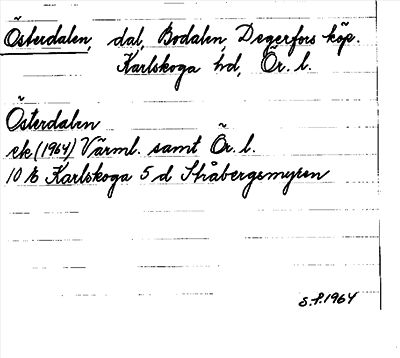 Österdalen, dal, Bodalen, Degerfors köp.
Karlskoga hd, Ör. l.
Österdalen
ek (1964) Värml. samt Ör. l.
10 E Karlskoga 5 d Stråbergsmyren
S.P. 1964